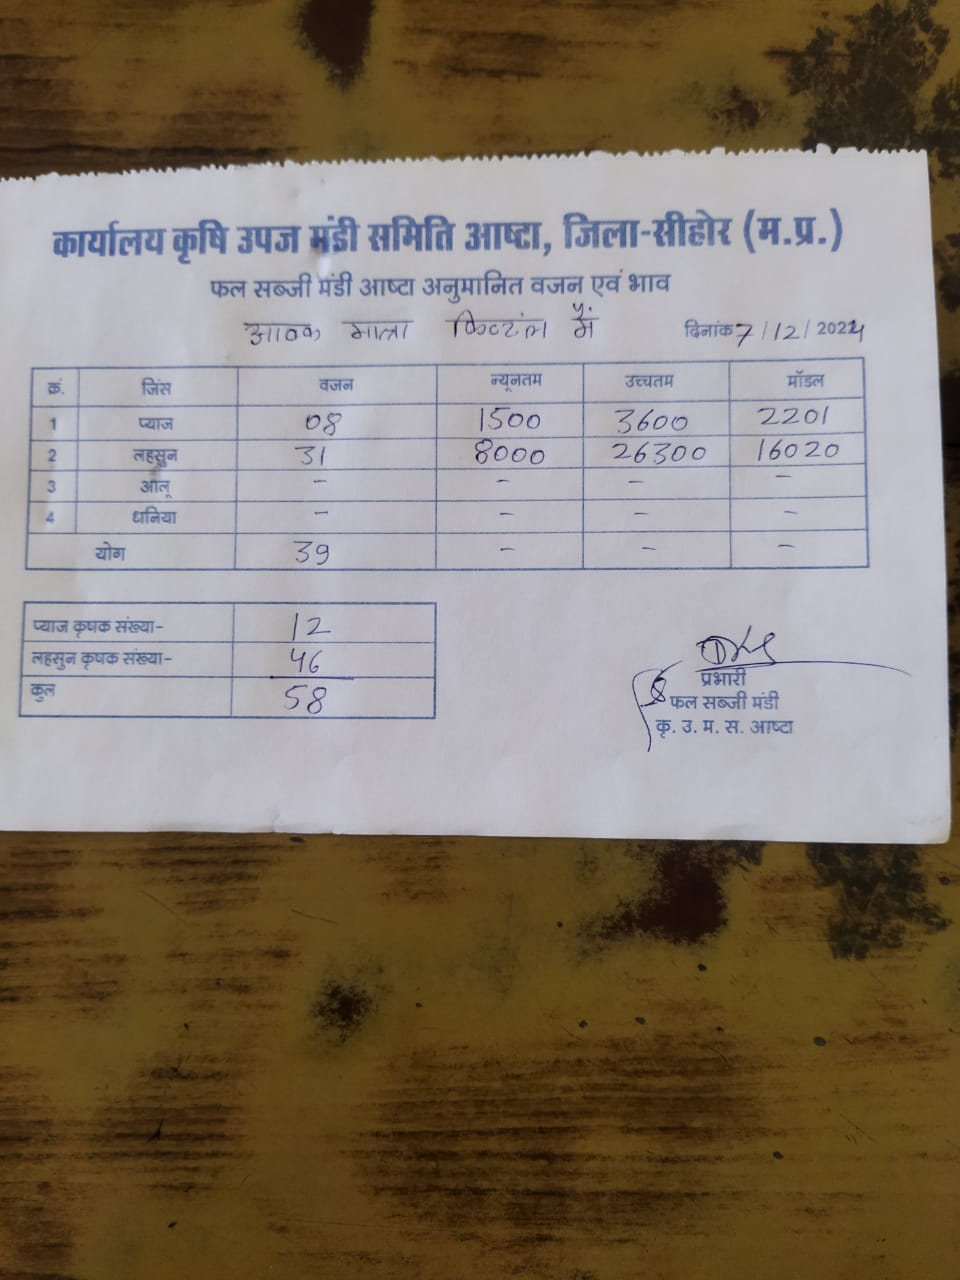 कार्यालय कृषि उपज मंडी समिति आष्टा, जिला-सीहोर (म.प्र.)
फल सब्जी मंडी आष्टा अनुमानित वजन एवं भाव
आवक मात्रा क्विटंल में दिनांक 7/12/2024
क्रं. जिंस वजन न्यूनतम उच्चतम मॉडल
1 प्याज 08 1500 3600 2201
2 लहसुन 31 8000 26300 16020
3 आलू - - - -
4 धनिया - - - -
योग 39 - - -
प्याज कृषक संख्या- 12
लहसुन कृषक संख्या- 46
कुल 58
प्रभारी
फल सब्जी मंडी
कृ. उ. म. स. आष्टा